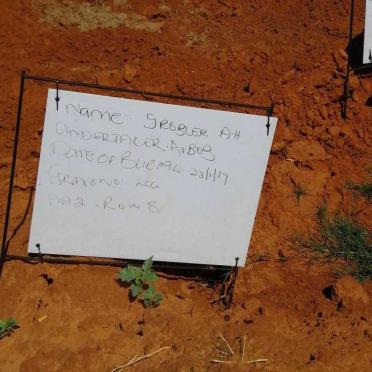 Name: GROBLER A.H
UNDERTAKER: AVBOB
DATE OF BURIAL: 23/1/19
GRAVE NO: 206
AA2. ROW 8